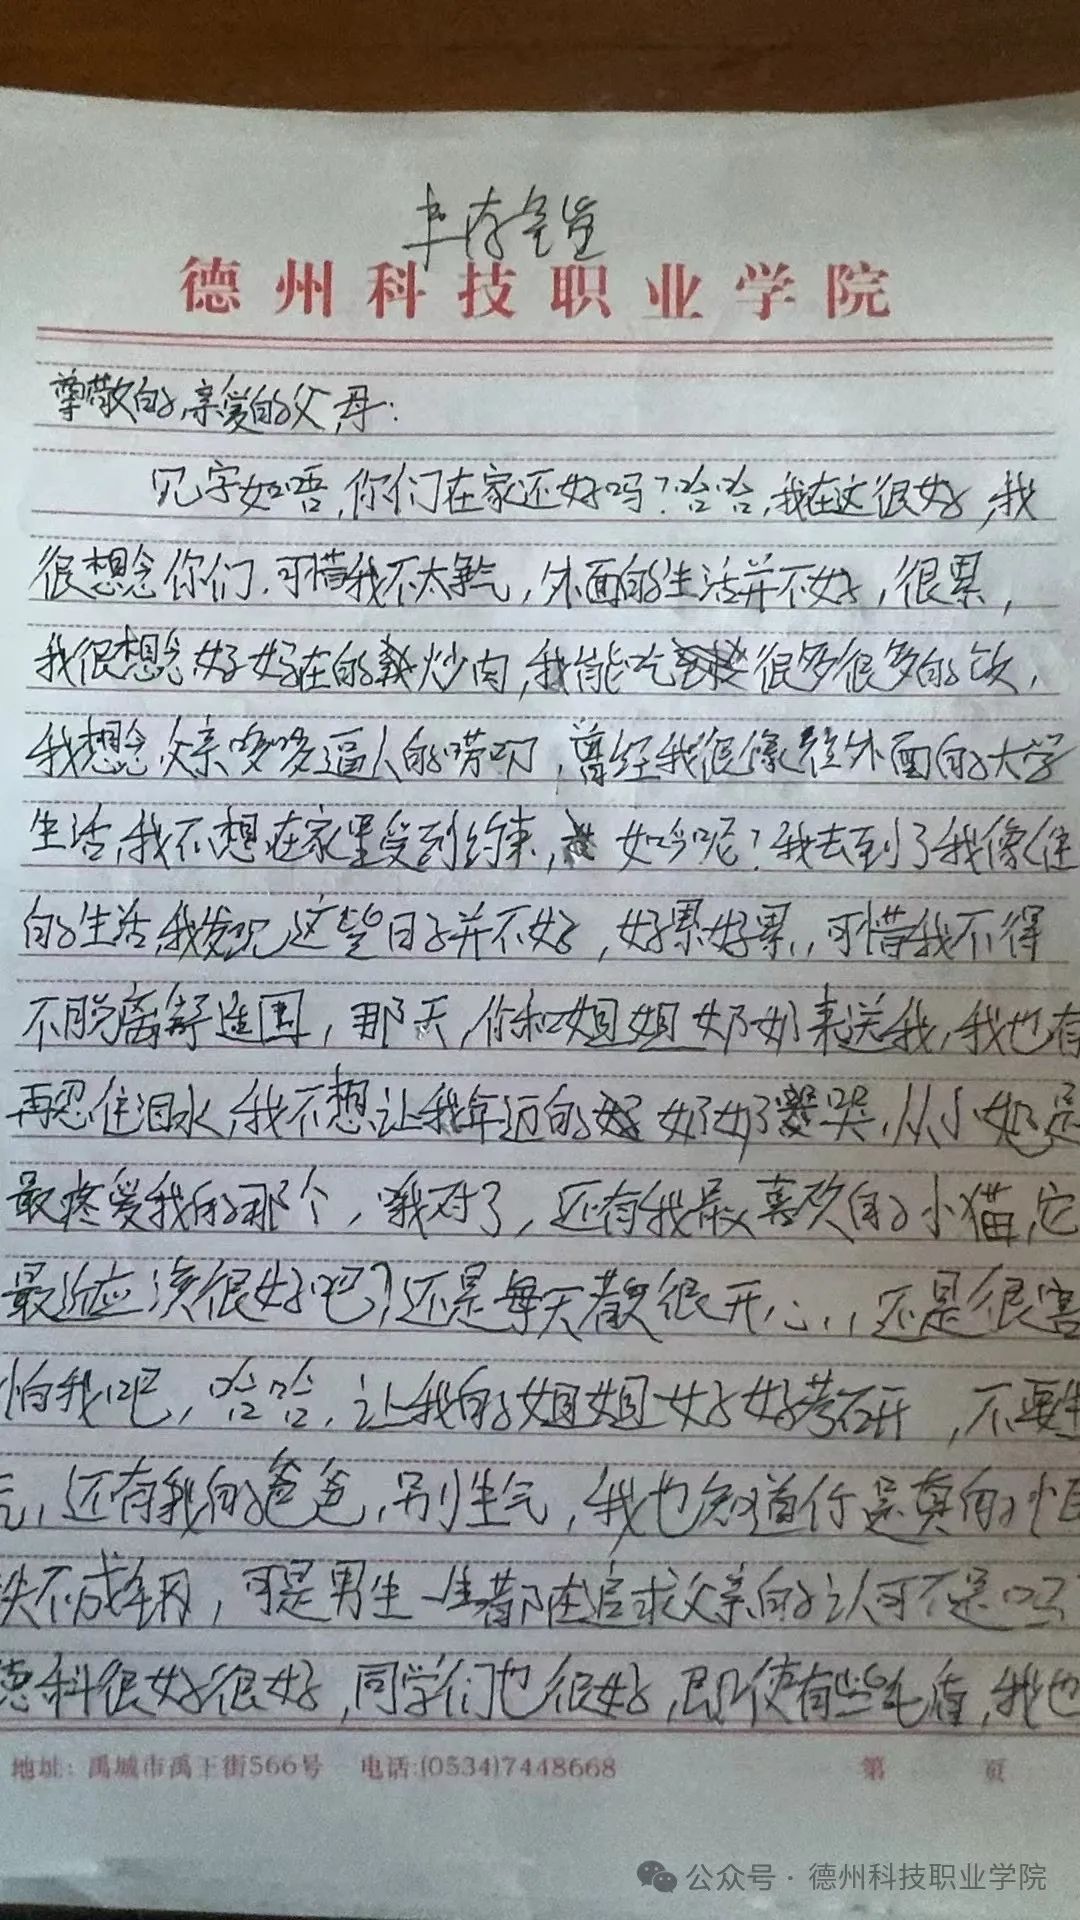 德州科技职业学院
尊敬的,亲爱的父母:
见字如唔,你们在家还好吗?哈哈,我在这很好,我
很想念你们.可惜我不太争气,外面的生活并不好,很累,
我很想念好好在的 炒肉,我能吃 很多很多的饭,
我想念父亲哆哆逼人的唠叨,曾经我很像往外面的大学
生活,我不想在家里受到约束, 如今呢?我去到了我像往
的生活,我发现这些日子并不好,好累好累,可惜我不得
不脱离舒适围,那天,你和姐姐奶奶来送我,我也有
再忍住泪水,我不想让我年迈的 奶奶 哭,从小她是
最疼爱我的那个,哦对了,还有我最喜欢的小猫,它
最近应该很好吧?还是每天都很开心,,还是很害
怕我吧,哈哈,让我的姐姐好好考研,不要生
气,还有我的爸爸,别生气,我也知道你是真的恨
铁不成钢,可是男生一生都在追求父亲的认可不是吗
德科很好很好,同学们也很好,即使有些 ,我也
地址:禹城市禹王街566号 电话:(0534)7448668 第 页
公众号·德州科技职业学院